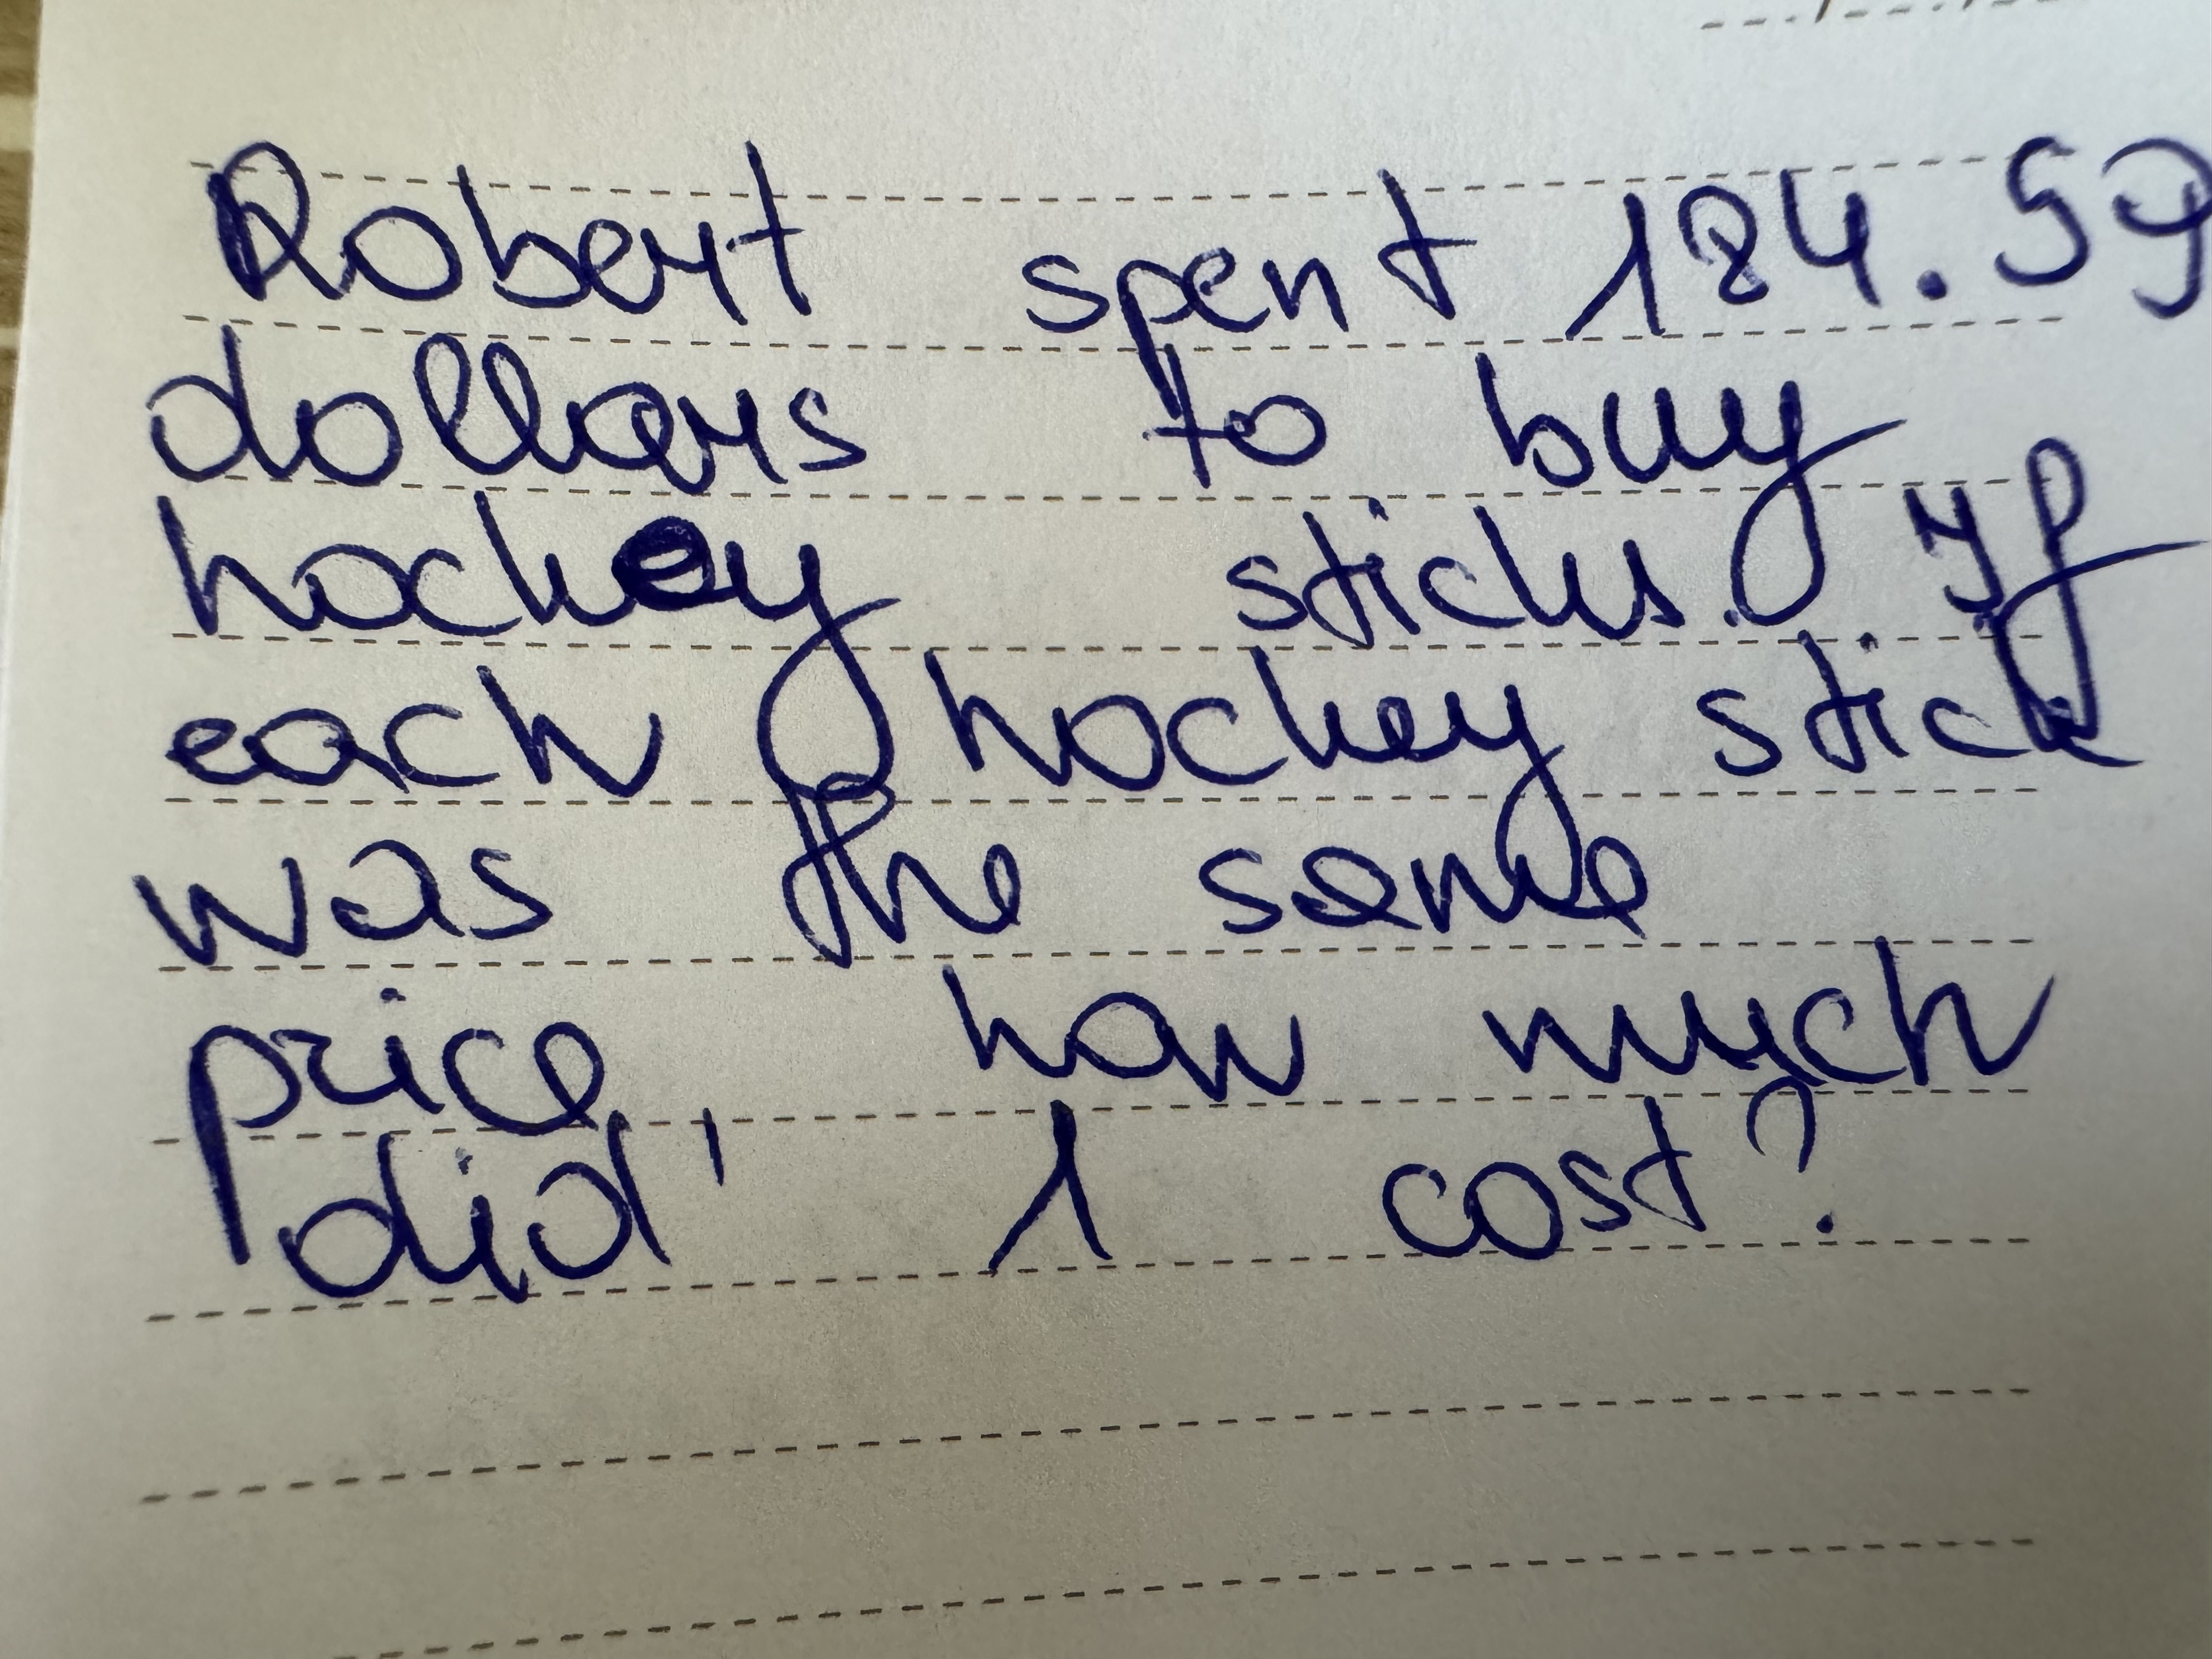 Robert spent 184.59
dollars to buy
hockey sticks. If
each hockey stick
was the same
price, how much
did 1 cost?